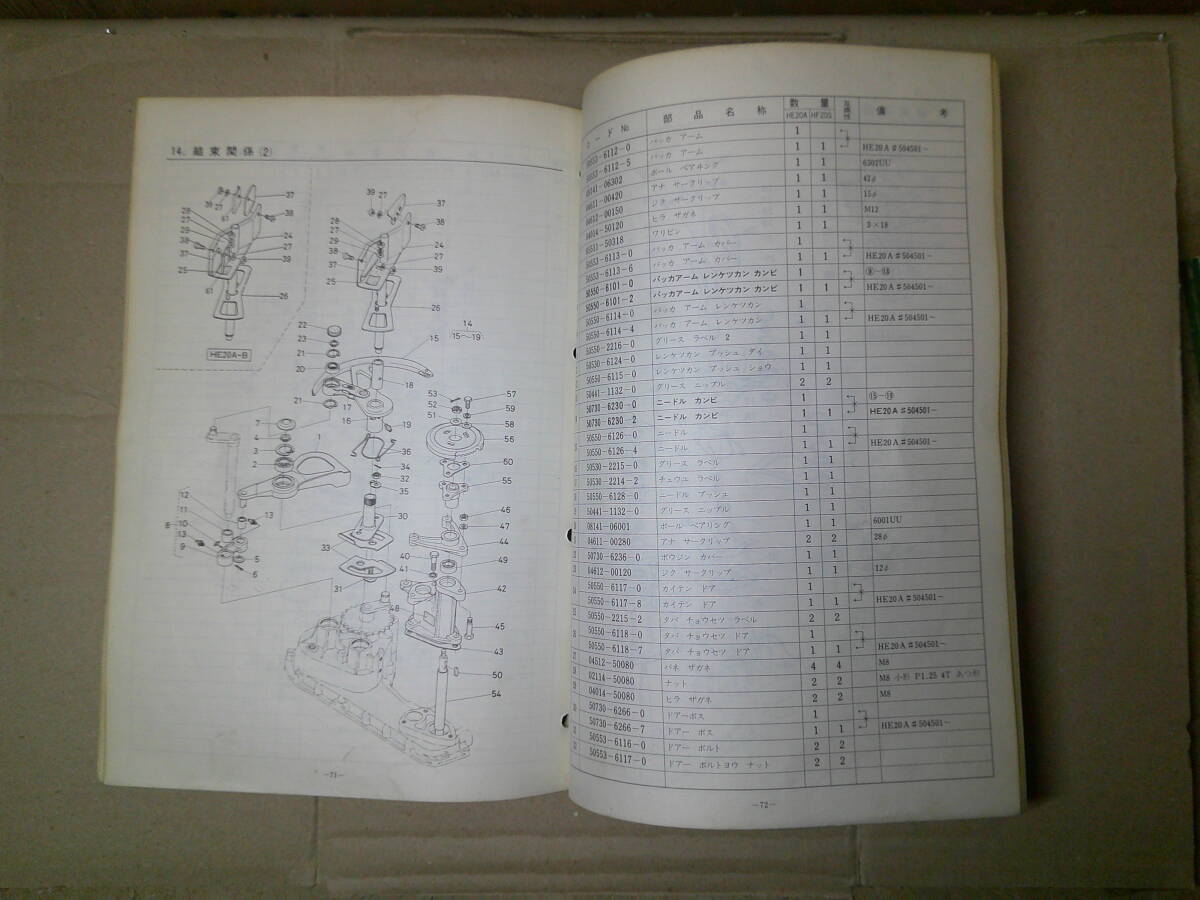 14. 結束関係(2)
HE20A-B
14
15〜19
—71—
コード No 部品名称 数量 互換性 備考
HE20A HF20S
50553-6112-0 パッカ アーム 1
50553-6112-5 パッカ アーム 1 1 HE20A#504501~
08141-06302 ボール ベアリング 1 1 6302UU
04611-00420 アナ サークリップ 1 1 42φ
04612-00150 ジク サークリップ 1 1 15φ
04014-50120 ヒラ ザガネ 1 1 M12
05511-50318 ワリピン 1 1 3×18
50553-6113-0 パッカ アーム カバー 1
50553-6113-6 パッカ アーム カバー 1 1 HE20A#504501~
50550-6101-0 パッカアーム レンケツカン カンビ 1 ⑨-⑬
50550-6101-2 パッカアーム レンケツカン カンビ 1 1 HE20A#504501~
50550-6114-0 パッカ アーム レンケツカン 1
50550-6114-4 パッカ アーム レンケツカン 1 1 HE20A#504501~
50550-2216-0 グリース ラベル 2 1 1
50530-6124-0 レンケツカン ブッシュ ダイ 1 1
50550-6115-0 レンケツカン ブッシュ ショウ 1 1
50441-1132-0 グリース ニップル 2 2
50730-6230-0 ニードル カンビ 1 ⑮-⑲
50730-6230-2 ニードル カンビ 1 1 HE20A#504501~
50550-6126-0 ニードル 1
50550-6126-4 ニードル 1 1 HE20A#504501~
50530-2215-0 グリース ラベル 1 1
50530-2214-2 チュウユ ラベル 1 1
50550-6128-0 ニードル ブッシュ 1 1
50441-1132-0 グリース ニップル 1 1
08141-06001 ボール ベアリング 1 1 6001UU
04611-00280 アナ サークリップ 2 2 28φ
50730-6236-0 ボウジン カバー 1 1
04612-00120 ジク サークリップ 1 1 12φ
50550-6117-0 カイテン ドア 1
50550-6117-8 カイテン ドア 1 1 HE20A#504501~
50550-2215-2 タバ チョウセツ ラベル 2 2
50550-6118-0 タバ チョウセツ ドア 1
50550-6118-7 タバ チョウセツ ドア 1 1 HE20A#504501~
04512-50080 バネ ザガネ 4 4 M8
02114-50080 ナット 2 2 M8 小形 P1.25 4T あつ形
04014-50080 ヒラ ザガネ 2 2 M8
50730-6266-0 ドアーボス 1
50730-6266-7 ドアー ボス 1 1 HE20A#504501~
50553-6116-0 ドアー ボルト 2 2
50553-6117-0 ドアー ボルトヨウ ナット 2 2
—72—